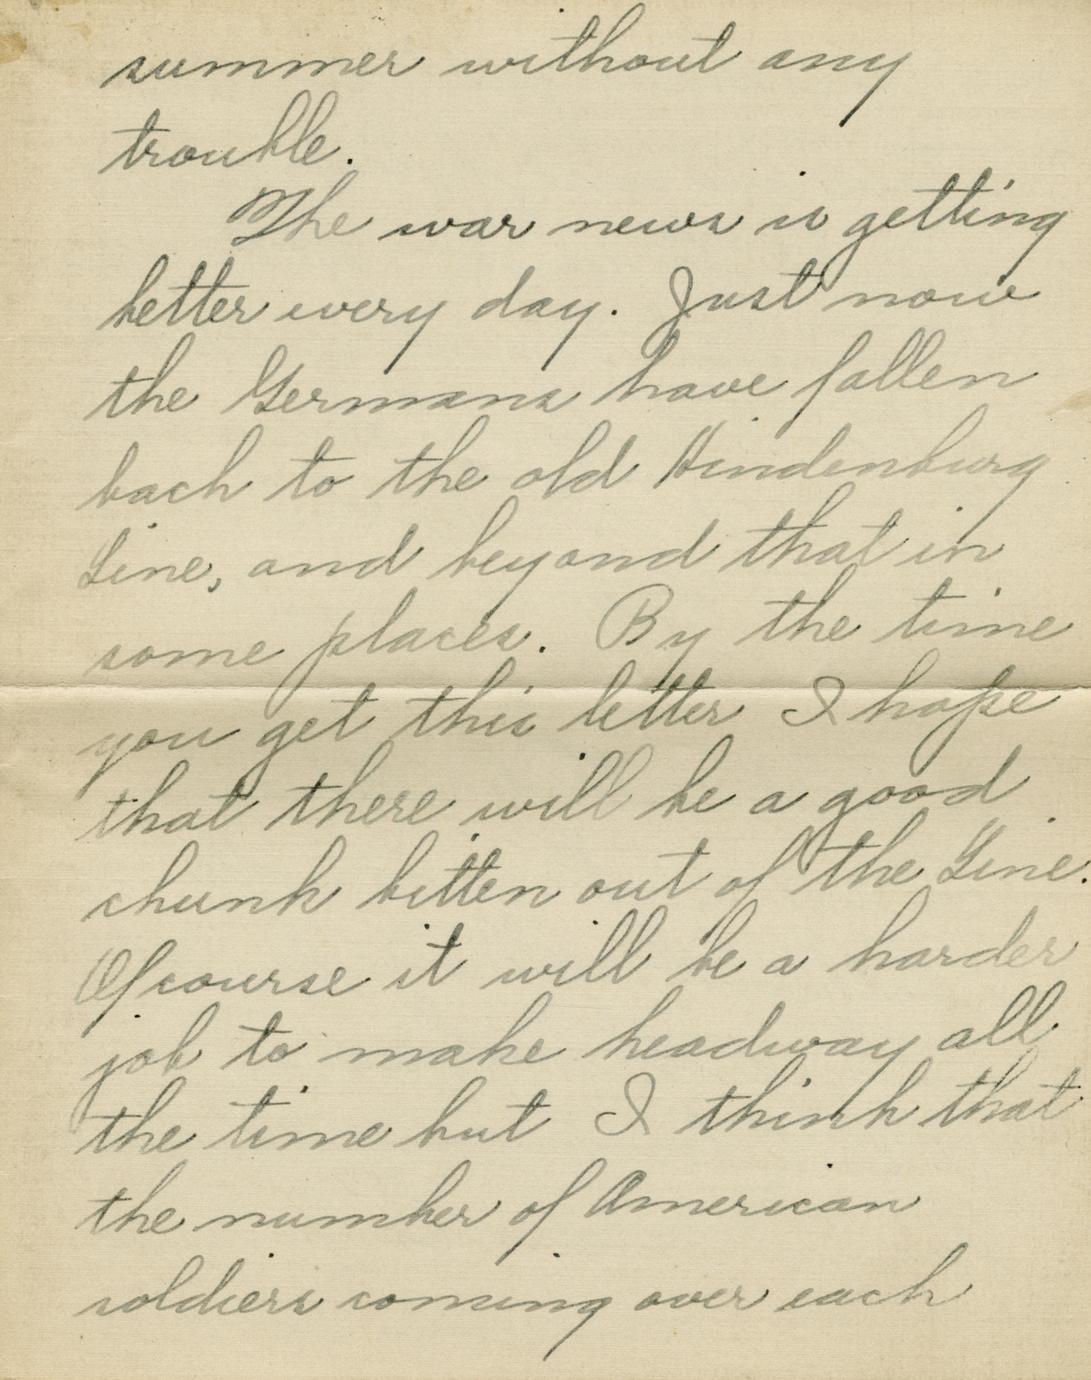 summer without any
trouble.
The war news is getting
better every day. Just now
the Germans have fallen
back to the old Hindenburg
Line, and beyond that in
some places. By the time
you get this letter I hope
that there will be a good
chunk bitten out of the Line.
Ofcourse it will be a harder
job to make headway all
the time but I think that
the number of American
soldiers coming over each